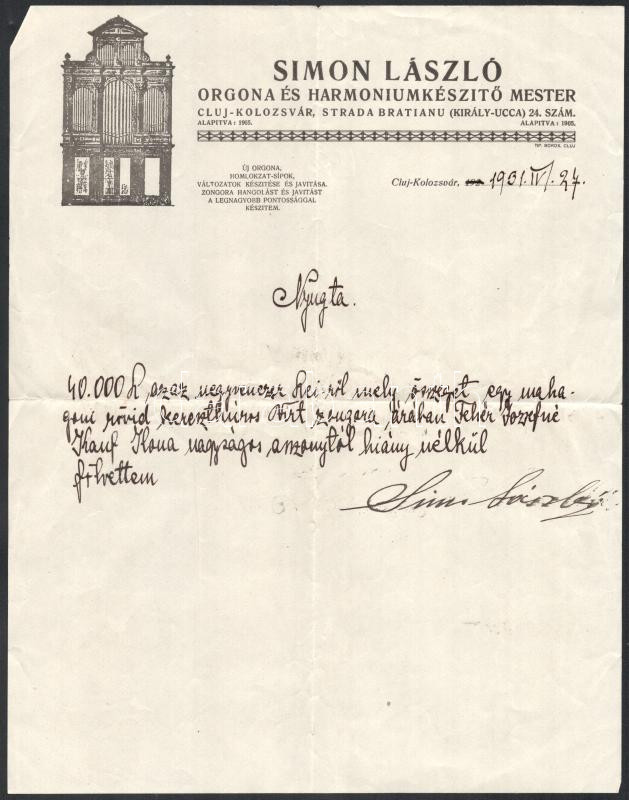 SIMON LÁSZLÓ
ORGONA ÉS HARMONIUMKÉSZITŐ MESTER
CLUJ-KOLOZSVÁR, STRADA BRATIANU (KIRÁLY-UCCA) 24. SZÁM.
ALAPITVA: 1905. ALAPITVA: 1905.
TIP. BOROS, CLUJ
ÚJ ORGONA,
HOMLOKZAT-SÍPOK,
VÁLTOZATOK KÉSZITÉSE ÉS JAVITÁSA.
ZONGORA HANGOLÁST ÉS JAVITÁST
A LEGNAGYOBB PONTOSSÁGGAL
KÉSZITEM.
Cluj-Kolozsvár, 1931. IV/27.
Nyugta.
40.000 L, azaz negyvenezer Lei-ről mely összeget, egy maha-
goni rövid kereszthúros Wirt zongora árában Fehér Józsefné
Kauf Ilona nagyságos asszonytól hiány nélkül
fölvettem
Simon László